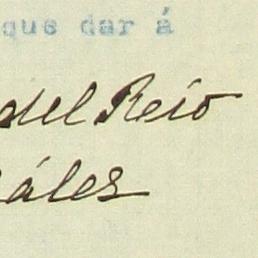 que dar á
del Reio
áles